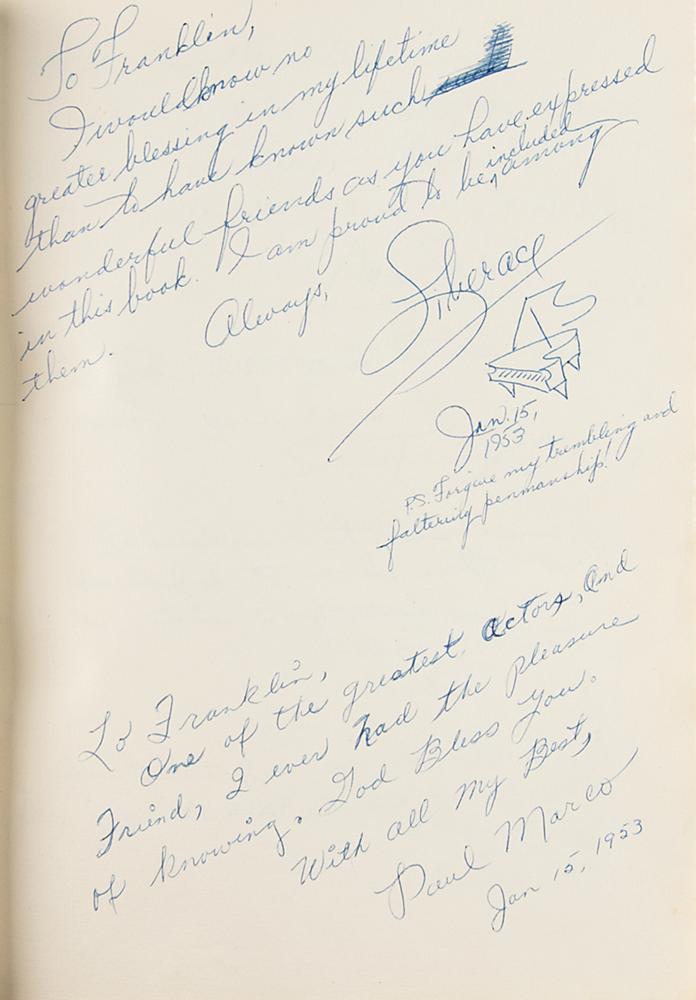 To Franklin,
I would know no
greater blessing in my lifetime
than to have known such
wonderful friends as you have expressed
in this book. I am proud to be included among
them.
Always,
Liberace
Jan. 15,
1953
P.S. Forgive my trembling and
faltering penmanship!
To Franklin,
One of the greatest actors, and
Friend, I ever had the pleasure
of knowing. God Bless you.
With all my Best,
Paul Marco
Jan 15, 1953